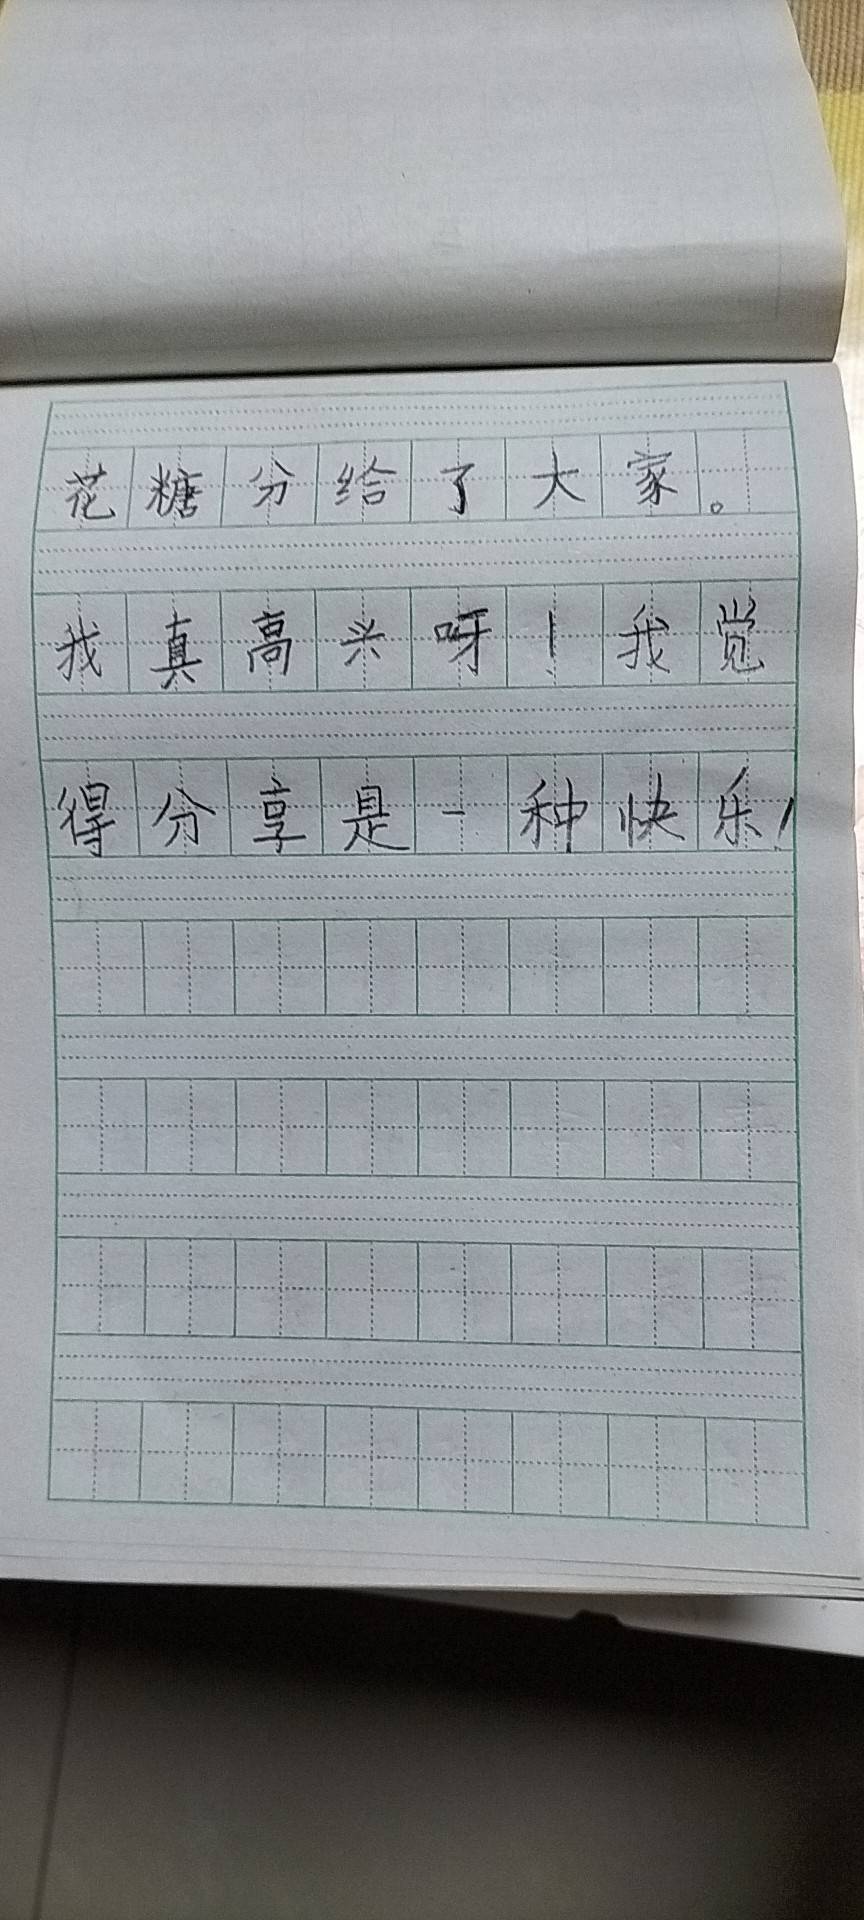 花糖分给了大家。
我真高兴呀！我觉
得分享是一种快乐！